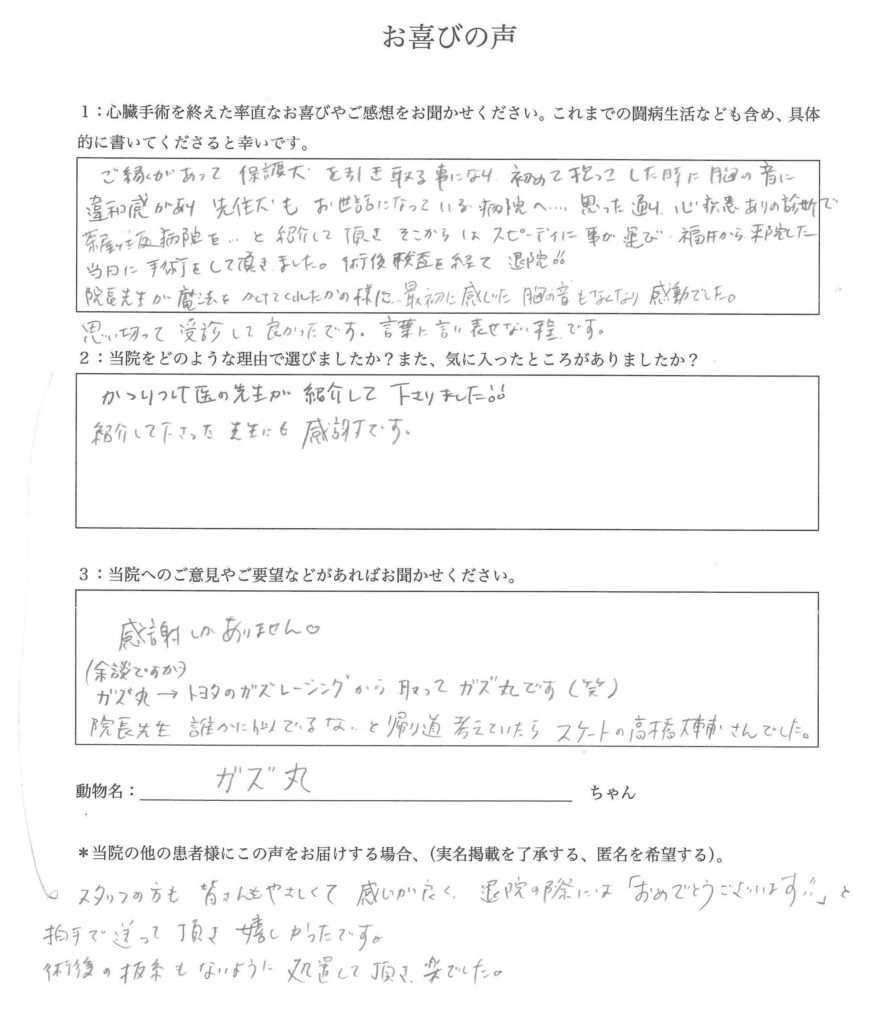 お喜びの声
１：心臓手術を終えた率直なお喜びやご感想をお聞かせください。これまでの闘病生活なども含め、具体
的に書いてくださると幸いです。
ご縁があって 保護犬 を引き取る事になり 初めて抱っこした時に胸の音に
違和感があり 先住犬も お世話になっている病院へ… 思った通り、心疾患ありの診断で
茶屋ヶ坂病院を… と紹介して頂き そこからは スピーディに事が運び 福井から来院した
当日に手術をして頂きました。術後検査を経て 退院!!
院長先生が魔法をかけてくれたかの様に 最初に感じた 胸の音もなくなり 感動でした。
思い切って 受診して良かったです。言葉に言い表せない程です。
２：当院をどのような理由で選びましたか？また、気に入ったところがありましたか？
かかりつけ医の先生が 紹介して下さりました!!
紹介して下さった 先生にも 感謝です。
３：当院へのご意見やご要望などがあればお聞かせください。
感謝しかありません♡
(余談ですが)
ガズ丸→トヨタのガズレーシングから取って ガズ丸です（笑）
院長先生 誰かに似でるな… と帰り道 考えていたら スケートの高橋大輔さんでした。
動物名： ガズ丸 ちゃん
＊当院の他の患者様にこの声をお届けする場合、（実名掲載を了承する、匿名を希望する）。
○ スタッフの方も 皆さんもやさしくて 感じが良く、退院の際には「おめでとうございます!!」と
拍手で送って頂き 嬉しかったです。
術後の抜糸もないように 処置して頂き、楽でした。